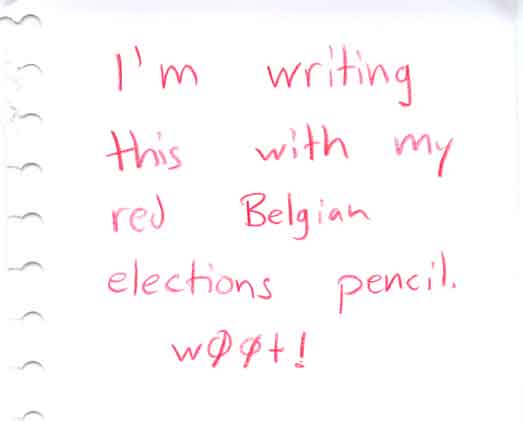 I'm writing
this with my
red Belgian
elections pencil.
wØØt!